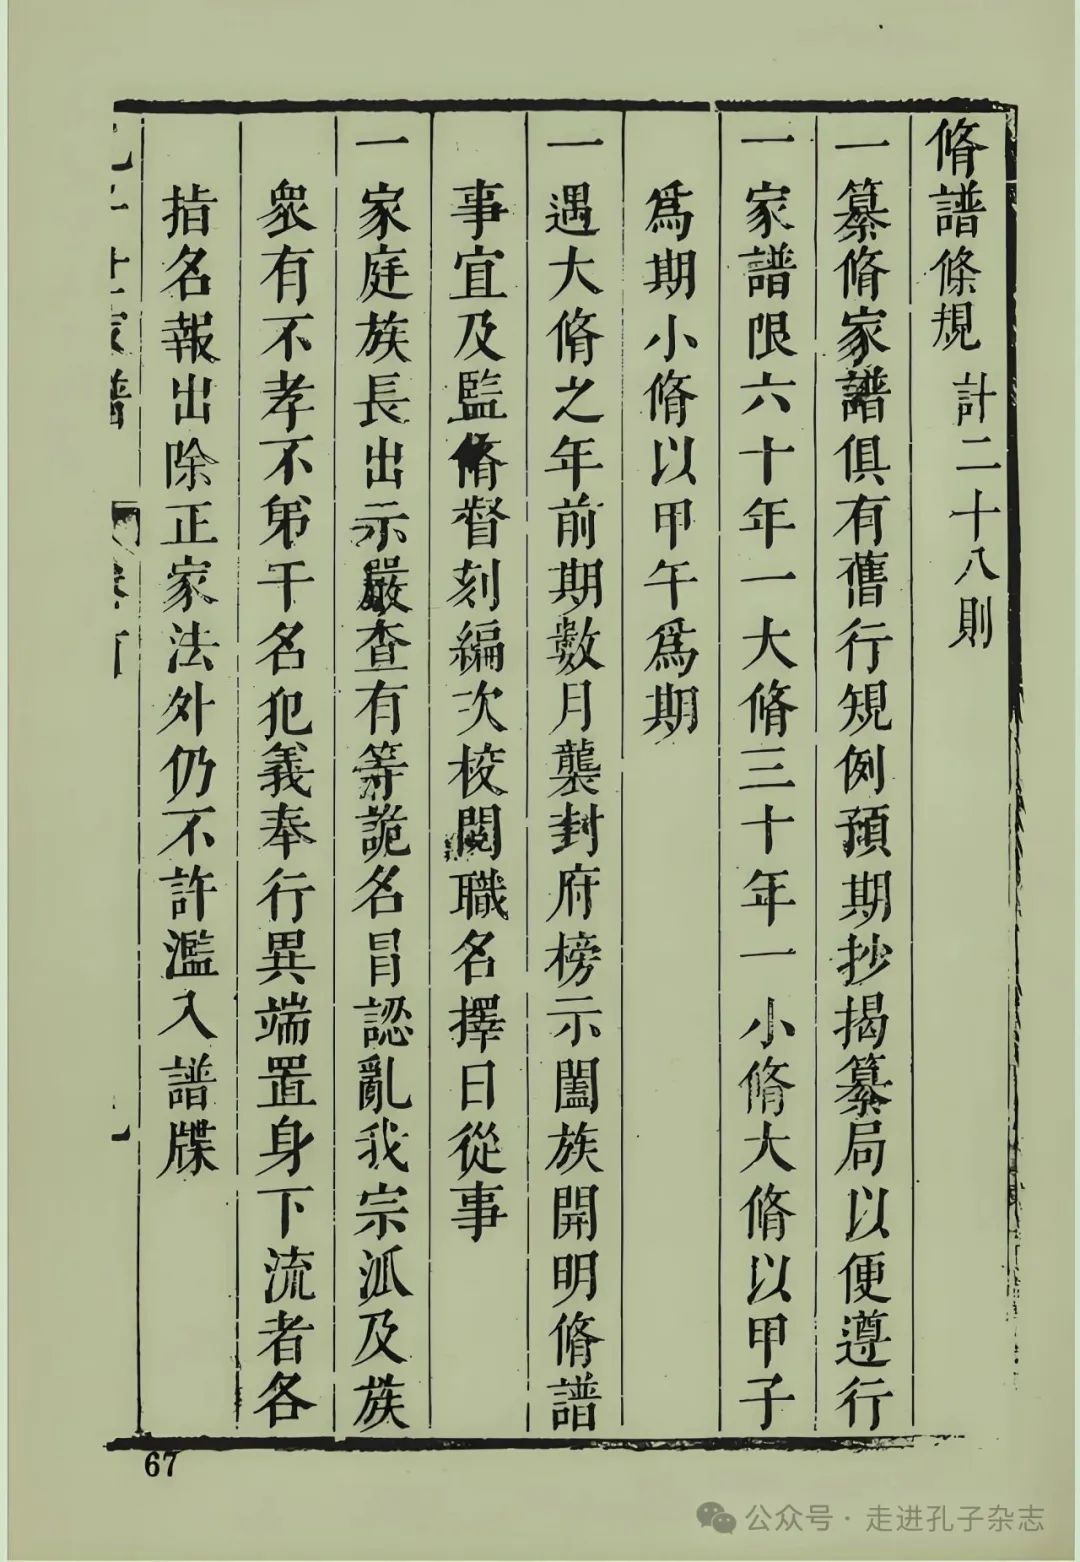 脩譜條規 計二十八則
一纂脩家譜俱有舊行規例預期抄揭纂局以便遵行
一家譜限六十年一大脩三十年一小脩大脩以甲子
爲期小脩以甲午爲期
一遇大脩之年前期數月襲封府榜示闔族開明脩譜
事宜及監脩督刻編次校閱職名擇日從事
一家庭族長出示嚴查有等詭名冒認亂我宗派及族
衆有不孝不弟干名犯義奉行異端置身下流者各
指名報出除正家法外仍不許濫入譜牒
67
公众号·走进孔子杂志